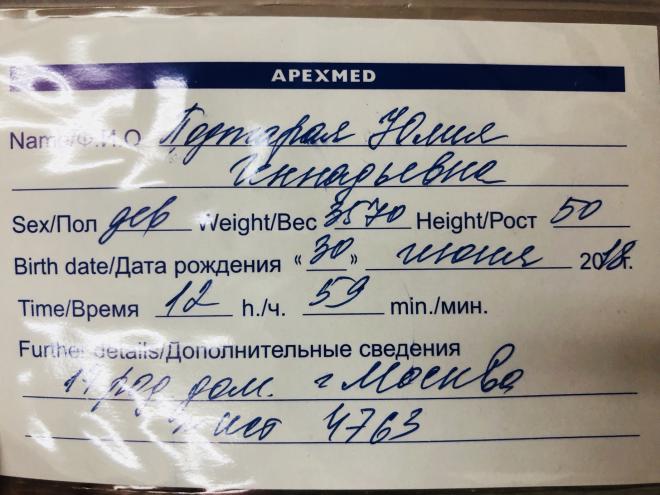 APEXMED
Name/Ф.И.О. Поджарая Юлия
Геннадьевна
Sex/Пол дев Weight/Вес 3570 Height/Рост 50
Birth date/Дата рождения « 30 » июня 2018г.
Time/Время 12 h./ч. 59 min./мин.
Further details/Дополнительные сведения
род дом. г Москва
ист 4763